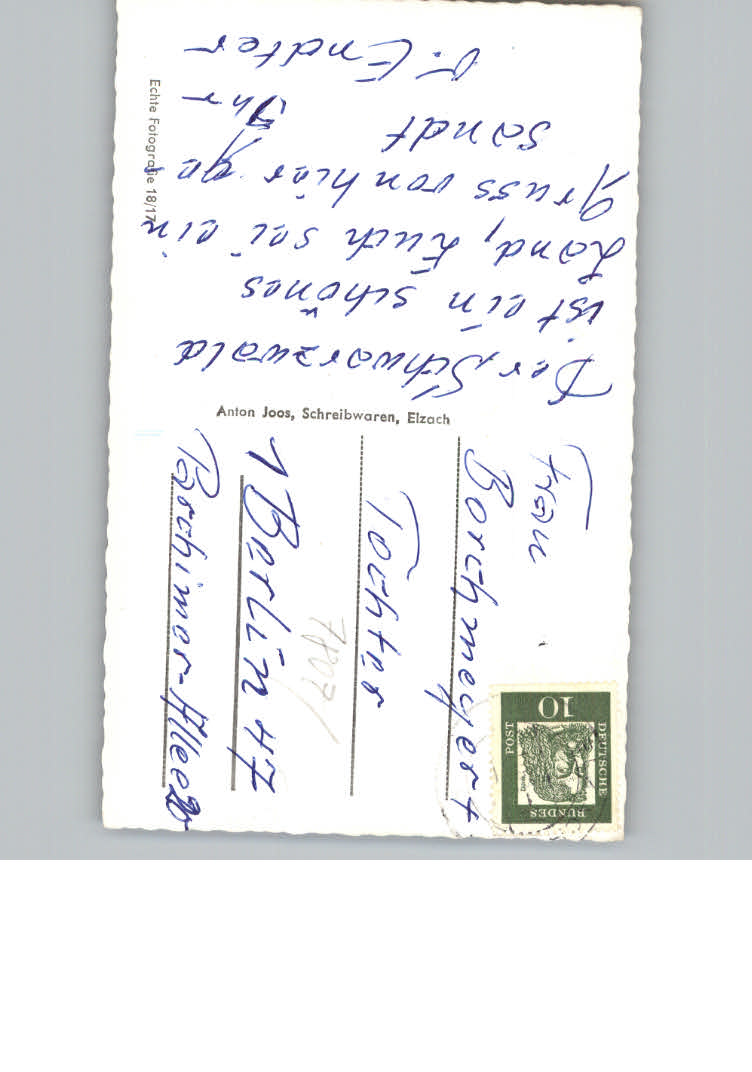 Der, Schwarzwald
ist ein schönes
Land, Euch sei ein
Gruss von hier ge
sandt
Ihr
V. Endter
Echte Fotografie 18/17
Anton Joos, Schreibwaren, Elzach
Frau
Borchmeyer +
Tochter
1 Berlin 47
Parchimer-Allee
7807/
DEUTSCHE
BUNDES
POST
10
Dürer